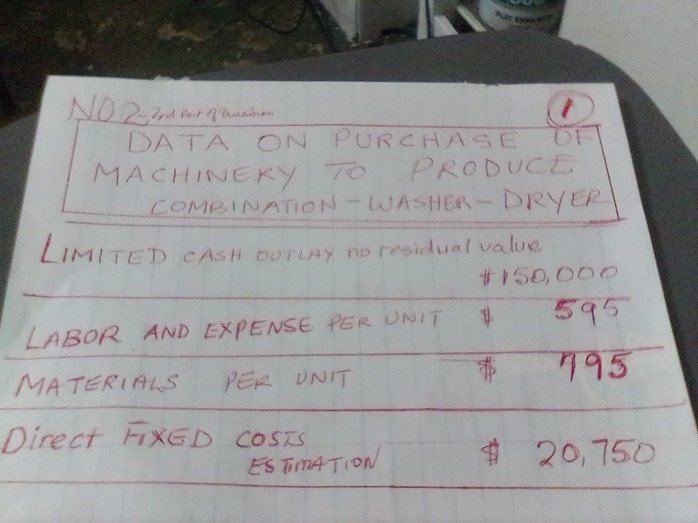 NO 2 - 3rd Part of Question
1
DATA ON PURCHASE OF
MACHINERY TO PRODUCE
COMBINATION - WASHER - DRYER
LIMITED CASH OUTLAY no residual value
$150,000
LABOR AND EXPENSE PER UNIT $ 595
MATERIALS PER UNIT $ 795
Direct FIXED COSTS
ESTIMATION $ 20,750